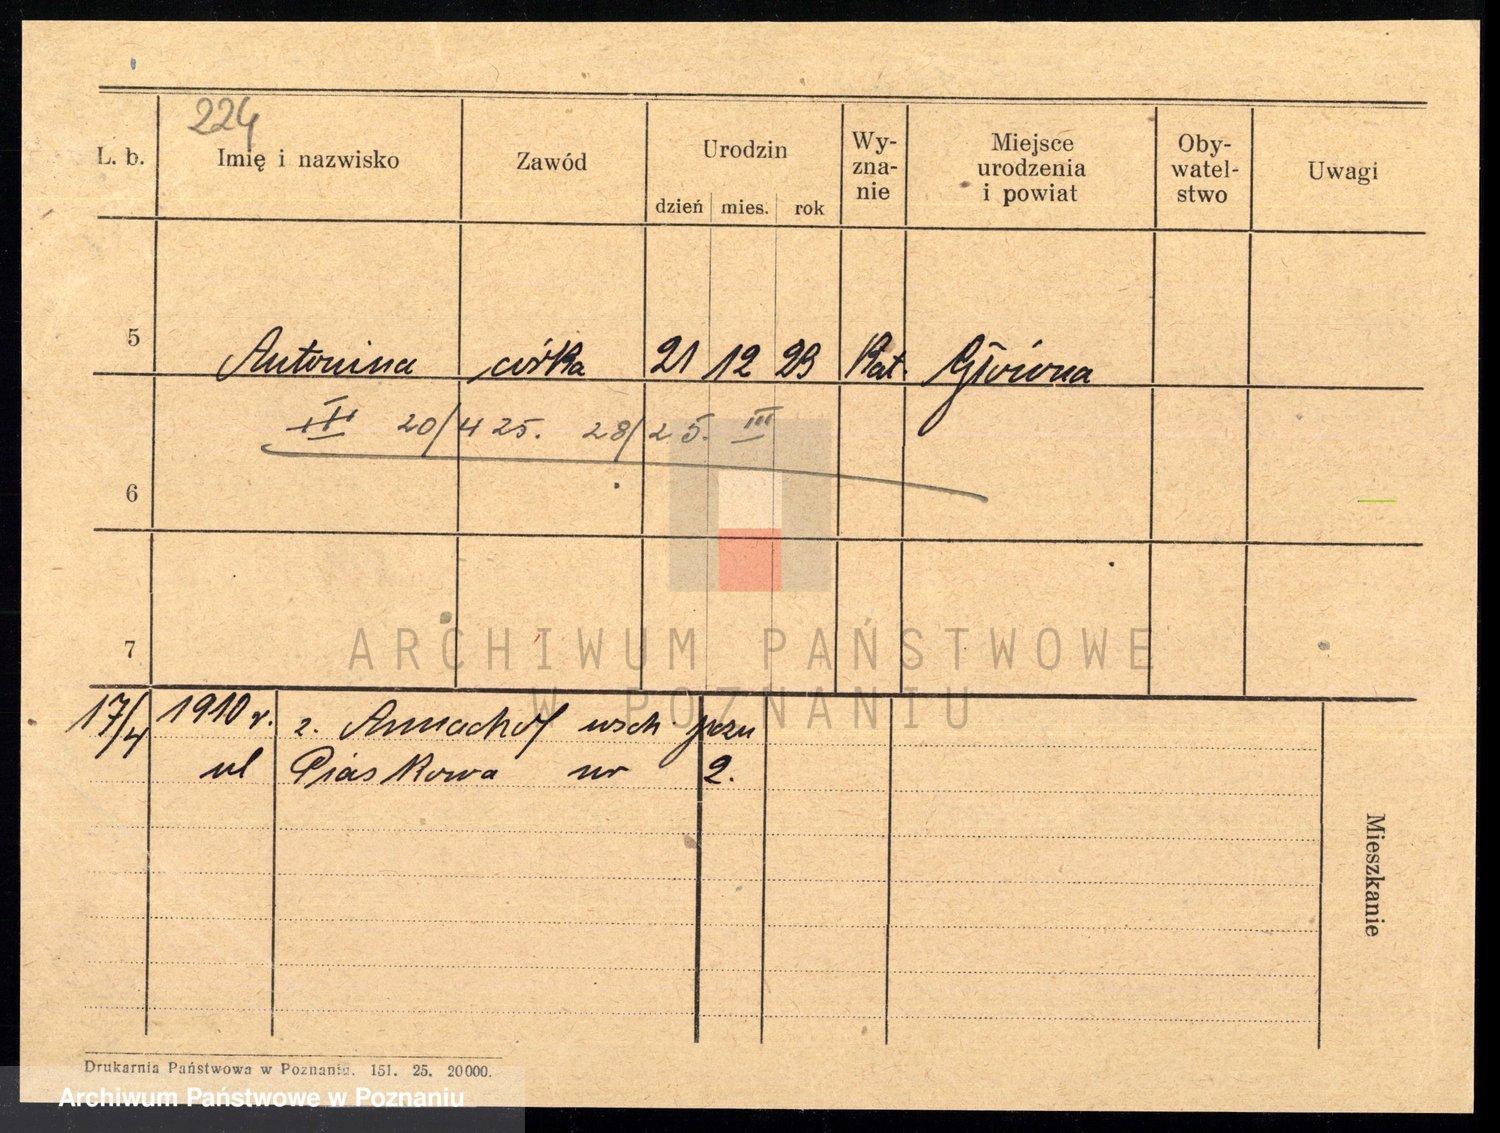 224
L. b. Imię i nazwisko Zawód Urodzin dzień mies. rok Wy-zna-nie Miejsce urodzenia i powiat Oby-watel-stwo Uwagi
5 Antonina córka 21 12 23 Kat. Główna
III 20/4 25. 28/25. III
6
7
ARCHIWUM PAŃSTWOWE
W POZNANIU
17/4 1910 r. z. Annachof wsch. pozn
ul Piaskowa nr 2.
Mieszkanie
Drukarnia Państwowa w Poznaniu. 151. 25. 20000.
Archiwum Państwowe w Poznaniu